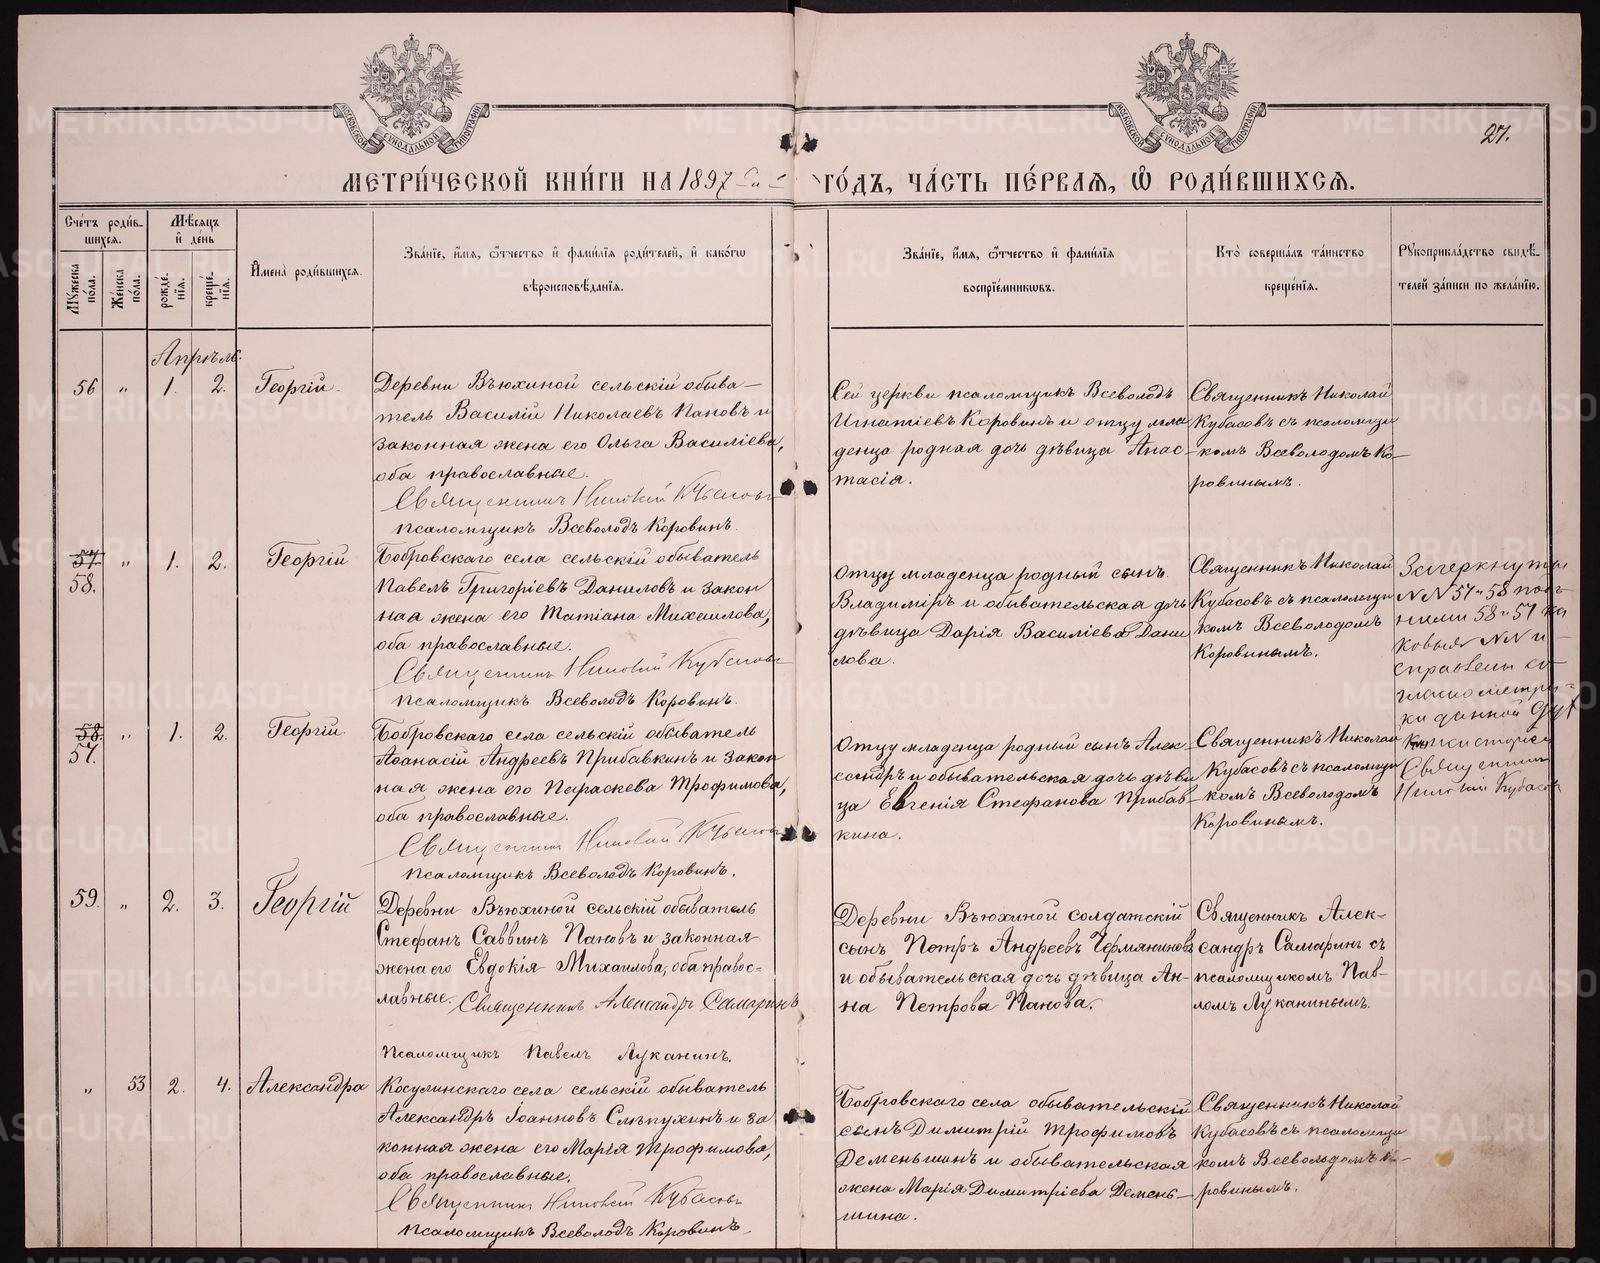 27.
МЕТРИ́ЧЕСКОЙ КНИ́ГИ НА 1897 ГО́ДЪ, ЧА́СТЬ ПЕ́РВАЯ, Ѽ РОДИ́ВШИХСЯ.
Сче́тъ роди́в-
шихся.
Му́жеска по́ла.
Же́нска по́ла.
Мѣ́сяцъ
и́ де́нь
рожде́-
нїя.
креще́-
нїя.
И҆мена̀ роди́вшихся.
Зва́нїе, и҆́мя, ѻ҆́тчество и҆ фами́лїя роди́телей, и҆ како́гѡ
вѣроисповѣ́данїя.
Зва́нїе, и҆́мя, ѻ҆́тчество и҆ фами́лїя
воспрїе́мниковъ.
Кто̀ соверша́лъ та́инство
креще́нїя.
Рукоприкла́дство свидѣ́-
телей за́писи по жела́нїю.
Апрѣль.
56 „ 1. 2. Георгій
Деревни Вьюхиной сельскій обыва-
тель Василій Николаевъ Пановъ и
законная жена его Ольга Василіева,
оба православные.
Священникъ Николай Кубасовъ
Псаломщикъ Всеволодъ Коровинъ.
Сей церкви псаломщикъ Всеволодъ
Игнатіевъ Коровинъ и отцу мла
денца родная дочь дѣвица Анас-
тасія.
Священникъ Николай
Кубасовъ съ псаломщи
комъ Всеволодомъ Ко-
ровинымъ.
57. „ 1. 2. Георгій
58.
Бобровскаго села сельскій обыватель
Павелъ Григоріевъ Даниловъ и закон
ная жена его Татіана Михаилова,
оба православные.
Священникъ Николай Кубасовъ
Псаломщикъ Всеволодъ Коровинъ.
Отцу младенца родный сынъ
Владиміръ и обывательская дочь
дѣвица Дарія Василіева Дани
лова.
Священникъ Николай
Кубасовъ съ псаломщи
комъ Всеволодомъ
Коровинымъ.
Зачеркнуты
NN 57 и 58
58 и 57
ковые NN и
справлены со
гласно метри-
ки данной
Священникъ
Николай Кубасовъ
58. „ 1. 2. Георгій
57.
Бобровскаго села сельскій обыватель
Аѳанасій Андреевъ Прибавкинъ и закон
ная жена его Параскева Трофимова,
оба православные.
Священникъ Николай Кубасовъ
Псаломщикъ Всеволодъ Коровинъ.
Отцу младенца родный сынъ Алек-
сандръ и обывательская дочь дѣви
ца Евгенія Стефанова Прибав
кина.
Священникъ Николай
Кубасовъ съ псаломщи
комъ Всеволодомъ
Коровинымъ.
59. „ 2. 3. Георгій
Деревни Вьюхиной сельскій обыватель
Стефанъ Саввинъ Пановъ и законная
жена его Евдокія Михаилова, оба правос-
лавные. Священникъ Александръ Самаринъ
Псаломщикъ Павелъ Луканинъ.
Деревни Вьюхиной солдатскій
сынъ Петръ Андреевъ Чермяниновъ
и обывательская дочь дѣвица Ан-
на Петрова Панова.
Священникъ Алек-
сандръ Самаринъ съ
псаломщикомъ Пав-
ломъ Луканинымъ.
„ 53 2. 4. Александра
Косулинскаго села сельскій обыватель
Александръ Іоанновъ Слѣпухинъ и за
конная жена его Марія Трофимова,
оба православные.
Священникъ Николай Кубасовъ
Псаломщикъ Всеволодъ Коровинъ.
Бобровскаго села обывательскій
сынъ Димитрій Трофимовъ
Деменьшинъ и обывательская
жена Марія Димитріева Демень-
шина.
Священникъ Николай
Кубасовъ съ псаломщи
комъ Всеволодомъ Ко-
ровинымъ.